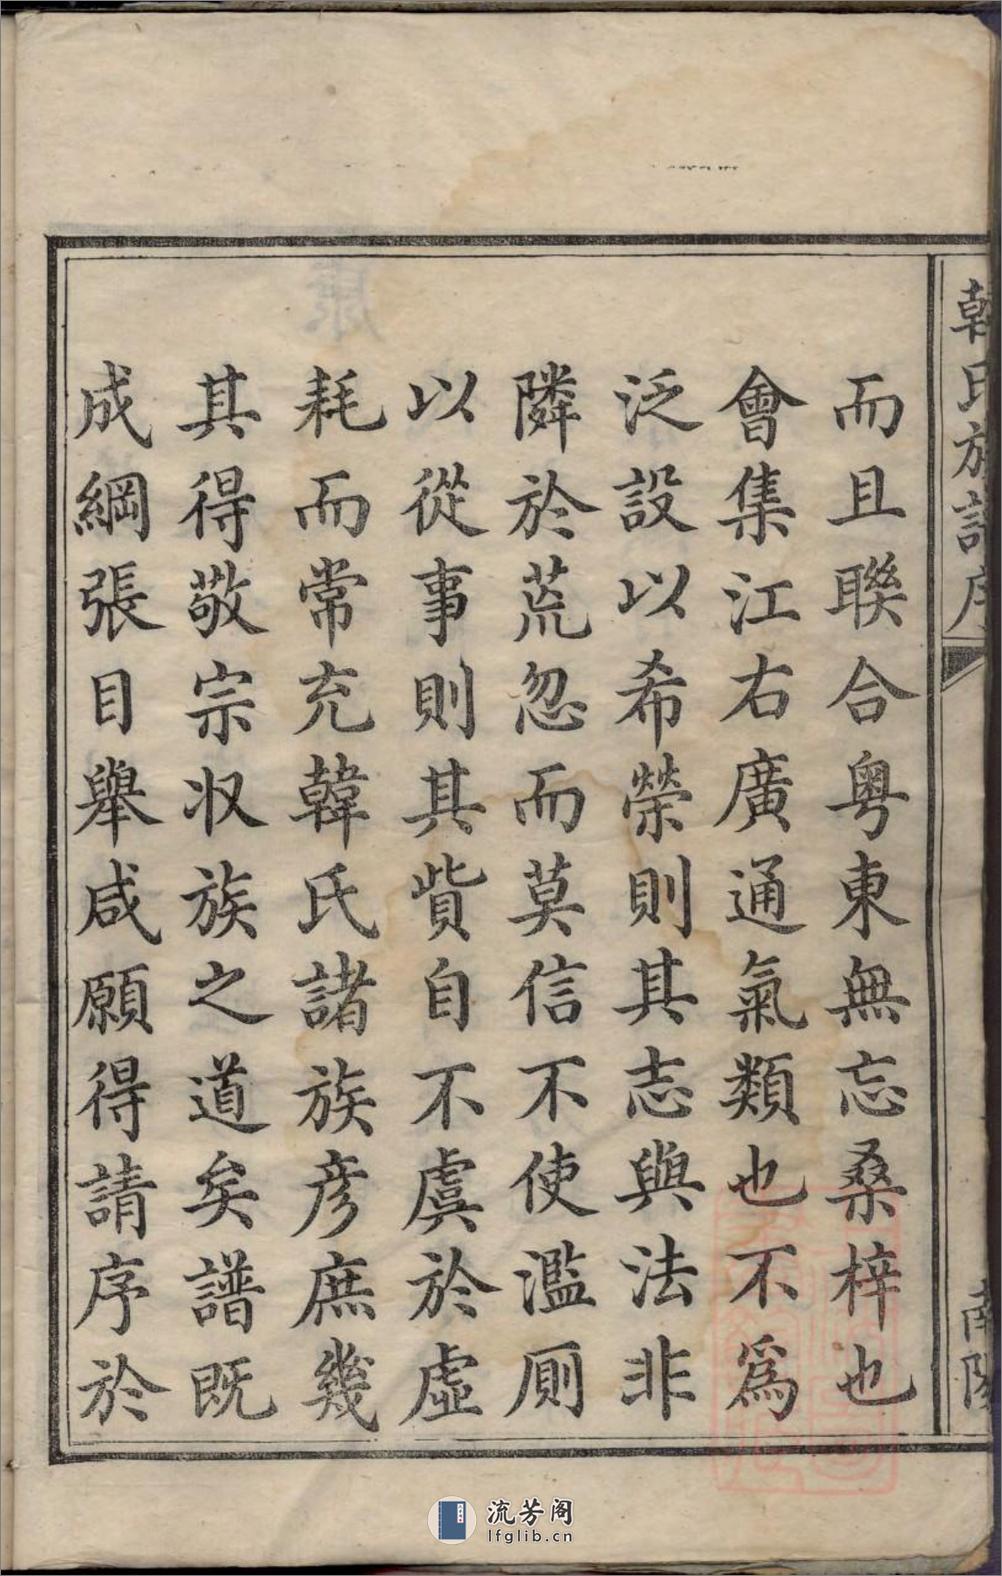 韓氏族譜序
南陽
而且聯合粤東無忘桑梓也
會集江右廣通氣類也不爲
泛設以希榮則其志與法非
隣於荒忽而莫信不使濫厠
以從事則其貲自不虞於虛
耗而常充韓氏諸族彦庶幾
其得敬宗收族之道矣譜既
成綱張目舉咸願得請序於
流芳阁
lfglib.cn